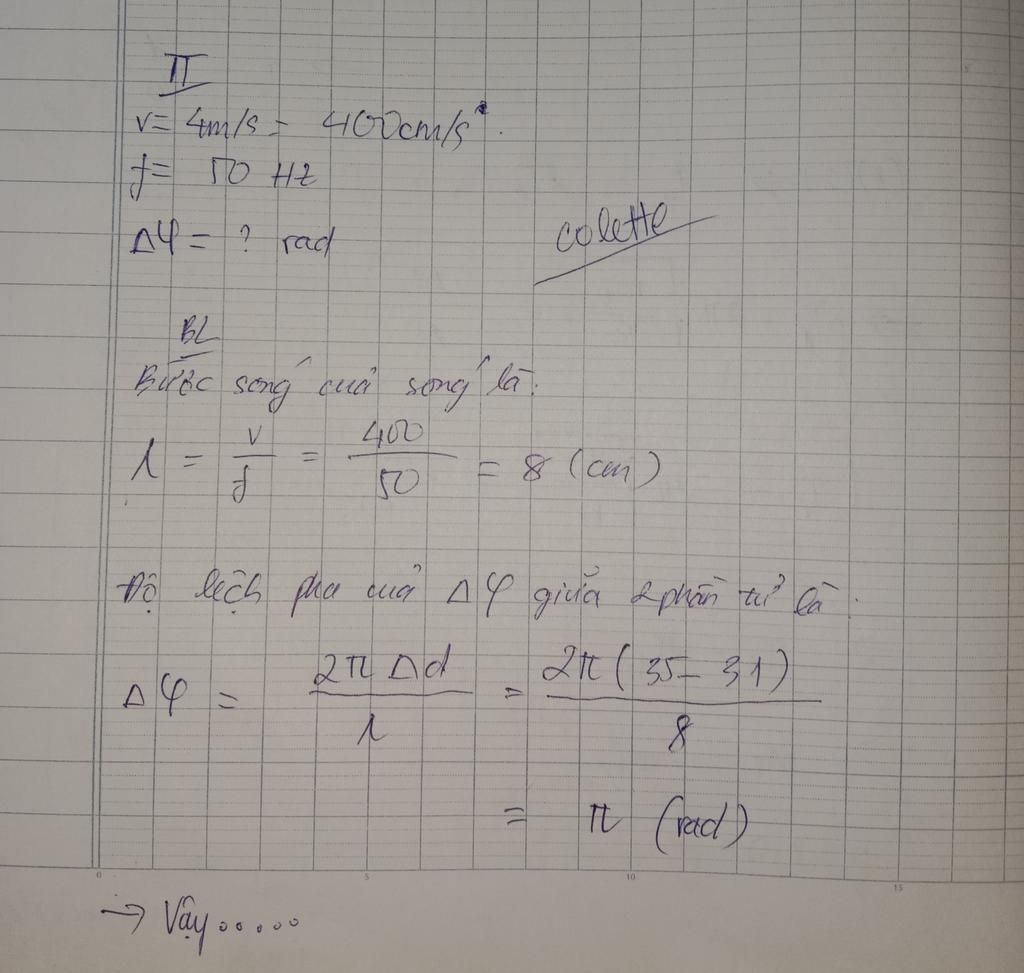 II
v = 4m/s = 400cm/s
f = 50 Hz
Δφ = ? rad
colette
BL
Bước sóng của sóng là:
λ = v/f = 400/50 = 8 (cm)
Độ lệch pha của Δφ giữa 2 phần tử là:
Δφ = 2π Δd/λ = 2π(35-31)/8
= π (rad)
0 5 10 15
→ Vậy.....